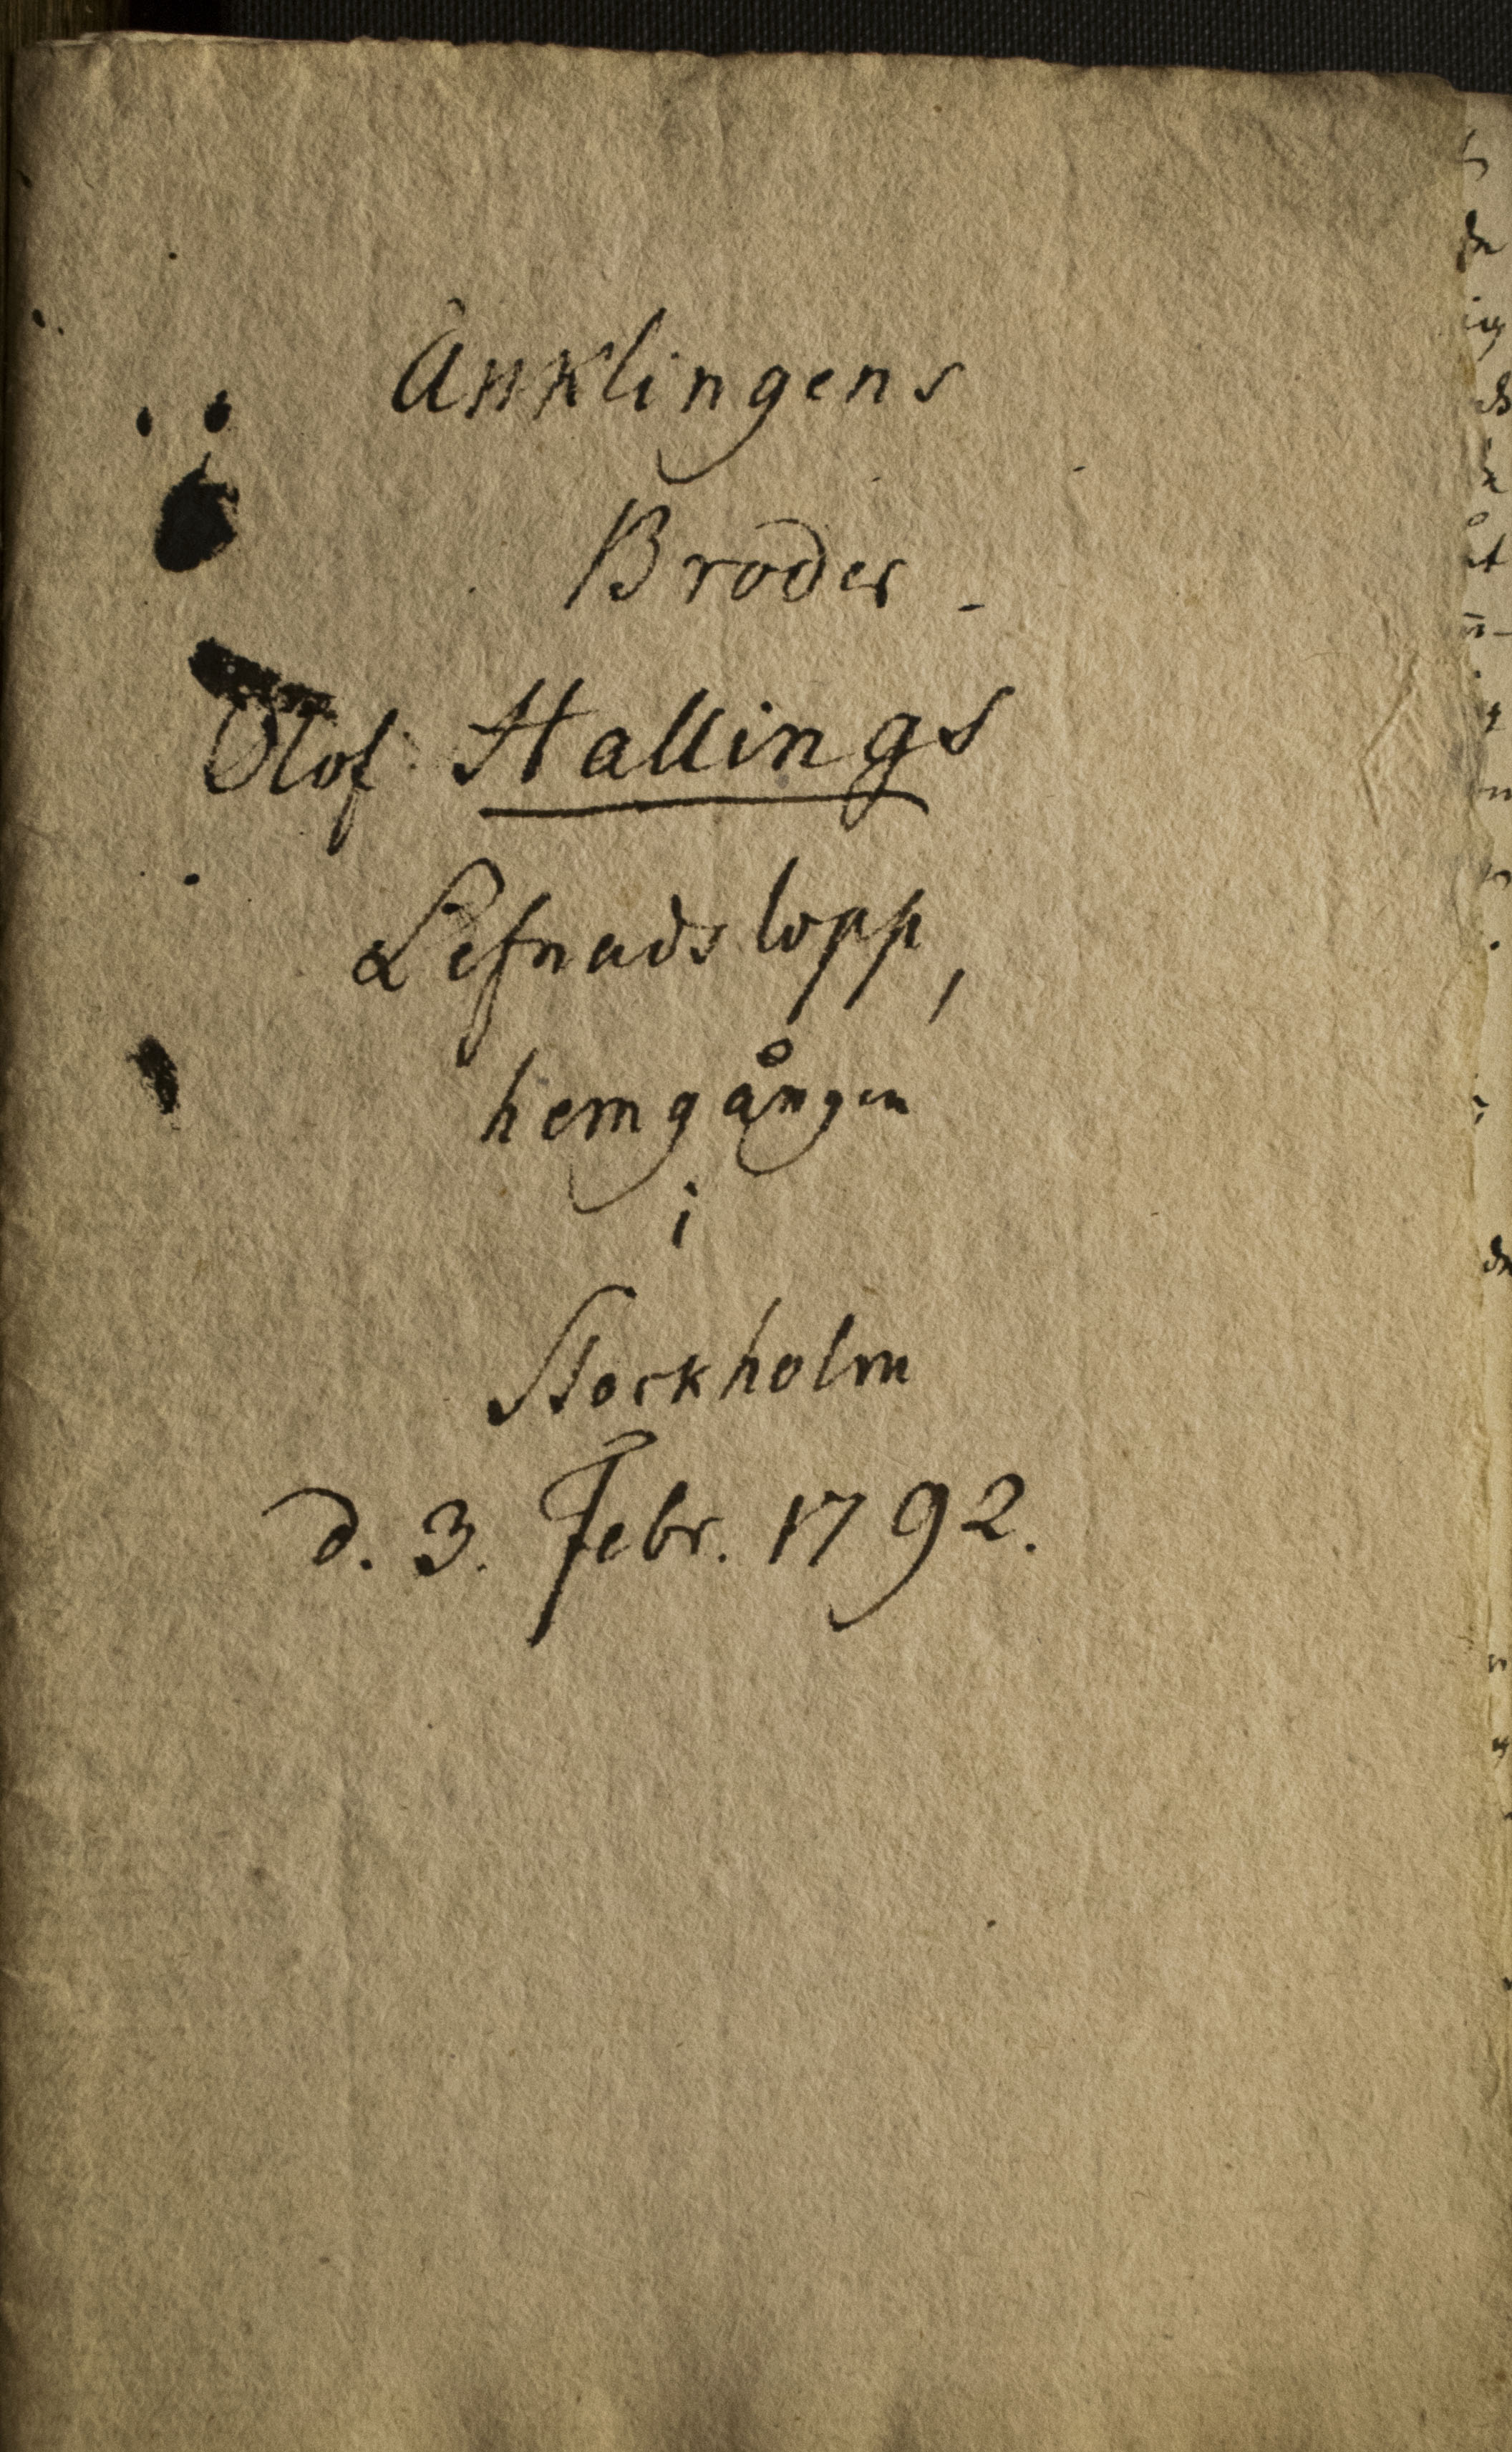 Änklingens
Broder
Olof Hallings
Lefnadslopp,
hemgången
i
Stockholm
d. 3. Febr. 1792.